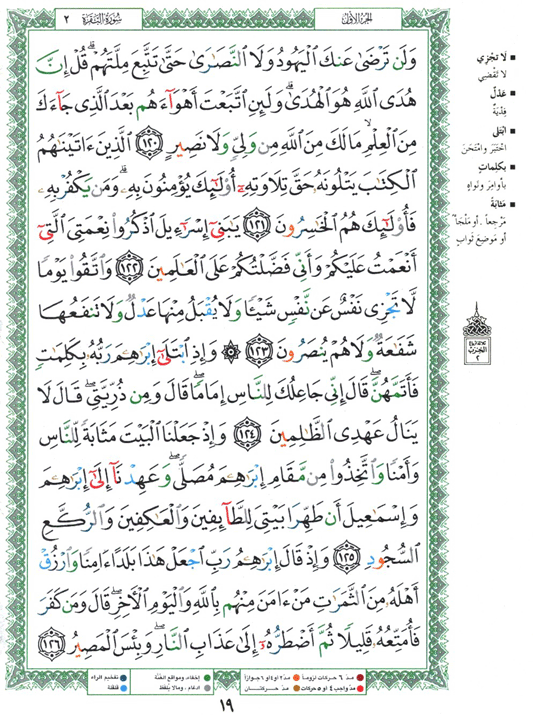 الجزء الأول
سورة البقرة ٢
وَلَن تَرْضَىٰ عَنكَ ٱلْيَهُودُ وَلَا ٱلنَّصَٰرَىٰ حَتَّىٰ تَتَّبِعَ مِلَّتَهُمْ ۗ قُلْ إِنَّ
هُدَى ٱللَّهِ هُوَ ٱلْهُدَىٰ ۗ وَلَئِنِ ٱتَّبَعْتَ أَهْوَآءَهُم بَعْدَ ٱلَّذِى جَآءَكَ
مِنَ ٱلْعِلْمِ ۙ مَا لَكَ مِنَ ٱللَّهِ مِن وَلِىٍّ وَلَا نَصِيرٍ ١٢٠ ٱلَّذِينَ ءَاتَيْنَٰهُمُ
ٱلْكِتَٰبَ يَتْلُونَهُۥ حَقَّ تِلَاوَتِهِۦٓ أُو۟لَٰٓئِكَ يُؤْمِنُونَ بِهِۦ ۗ وَمَن يَكْفُرْ بِهِۦ
فَأُو۟لَٰٓئِكَ هُمُ ٱلْخَٰسِرُونَ ١٢١ يَٰبَنِىٓ إِسْرَٰٓءِيلَ ٱذْكُرُوا۟ نِعْمَتِىَ ٱلَّتِىٓ
أَنْعَمْتُ عَلَيْكُمْ وَأَنِّى فَضَّلْتُكُمْ عَلَى ٱلْعَٰلَمِينَ ١٢٢ وَٱتَّقُوا۟ يَوْمًا
لَّا تَجْزِى نَفْسٌ عَن نَّفْسٍ شَيْـًٔا وَلَا يُقْبَلُ مِنْهَا عَدْلٌ وَلَا تَنفَعُهَا
شَفَٰعَةٌ وَلَا هُمْ يُنصَرُونَ ١٢٣ ۞ وَإِذِ ٱبْتَلَىٰٓ إِبْرَٰهِـۧمَ رَبُّهُۥ بِكَلِمَٰتٍ
فَأَتَمَّهُنَّ ۖ قَالَ إِنِّى جَاعِلُكَ لِلنَّاسِ إِمَامًا ۖ قَالَ وَمِن ذُرِّيَّتِى ۖ قَالَ لَا
يَنَالُ عَهْدِى ٱلظَّٰلِمِينَ ١٢٤ وَإِذْ جَعَلْنَا ٱلْبَيْتَ مَثَابَةً لِّلنَّاسِ
وَأَمْنًا وَٱتَّخِذُوا۟ مِن مَّقَامِ إِبْرَٰهِـۧمَ مُصَلًّى ۖ وَعَهِدْنَآ إِلَىٰٓ إِبْرَٰهِـۧمَ
وَإِسْمَٰعِيلَ أَن طَهِّرَا بَيْتِىَ لِلطَّآئِفِينَ وَٱلْعَٰكِفِينَ وَٱلرُّكَّعِ
ٱلسُّجُودِ ١٢٥ وَإِذْ قَالَ إِبْرَٰهِـۧمُ رَبِّ ٱجْعَلْ هَٰذَا بَلَدًا ءَامِنًا وَٱرْزُقْ
أَهْلَهُۥ مِنَ ٱلثَّمَرَٰتِ مَنْ ءَامَنَ مِنْهُم بِٱللَّهِ وَٱلْيَوْمِ ٱلْءَاخِرِ ۖ قَالَ وَمَن كَفَرَ
فَأُمَتِّعُهُۥ قَلِيلًا ثُمَّ أَضْطَرُّهُۥٓ إِلَىٰ عَذَابِ ٱلنَّارِ ۖ وَبِئْسَ ٱلْمَصِيرُ ١٢٦
لَا تَجْزِي
لا تقضي
عَدْلٌ
فِدْيَةٌ
ابْتَلى
اختبر وامتحن
بكلماتٍ
بأوامر ونواهٍ
مَثابةً
مَرْجعاً، أو مَلْجَأً
أو موضع ثواب
الحزب
٢
مدّ ٦ حركات لزوماً
مدّ ٢ أو ٤ أو ٦ جوازاً
إخفاء، ومواقع الغنّة
تفخيم الراء
مدّ واجب ٤ أو ٥ حركات
مدّ حركتان
ادغام، وما لا يلفظ
قلقلة
١٩